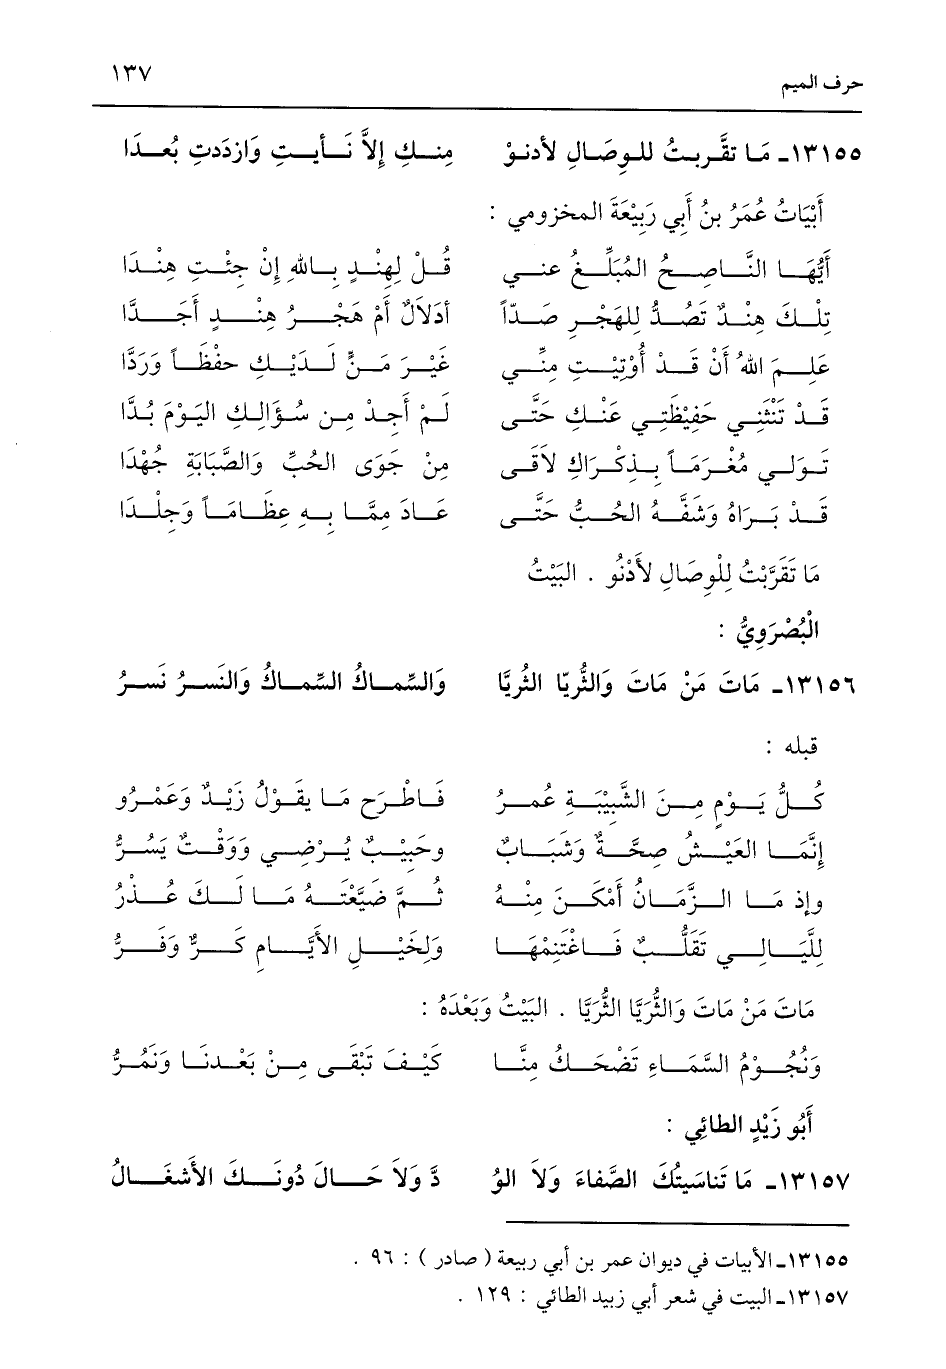 حرف الميم ١٣٧
١٣١٥٥ـ مَا تقَّربتُ للوِصَالِ لأدنوْ منكِ إلاَّ نَأيتِ وَازدَدتِ بُعدَا
أبْيَاتُ عُمَرُ بنُ أَبي رَبيْعَةَ المخزومي :
أيُّهَا النَّاصِحُ المُبَلِّغُ عني قُلْ لِهنْدٍ بِالله إنْ جئْتِ هِنْدَا
تِلكَ هِندٌ تَصُدُّ لِلهَجْرِ صَدّاً أدَلاَلٌ أمْ هَجْرُ هِنْدٍ أجَدَّا
عَلِمَ اللهُ أَنْ قَدْ أُوتِيْتِ مِنِّي غَيْرَ مَنٍّ لَدَيْكِ حفْظاً وَرَدَّا
قَدْ تَنْثَنِي حَفِيْظَتِي عَنْكِ حَتَّى لَمْ أجِدْ مِن سُؤَالِكِ اليَوْمَ بُدَّا
تَولى مُغْرَمَاً بِذِكْرَاكِ لاَقَى مِنْ جَوَى الحُبِّ وَالصَّبَابَةِ جُهْدَا
قَدْ بَرَاهُ وَشَفَّهُ الحُبُّ حَتَّى عَادَ مِمَّا بِهِ عِظَامَاً وَجِلْدَا
مَا تَقَرَّبْتُ لِلْوِصَالِ لأَدْنُو . البَيْتُ
الْبُصْرَوِيُّ :
١٣١٥٦ـ مَاتَ مَنْ مَاتَ وَالثُّريّا الثُريَّا وَالسِّماكُ السِّماكُ وَالنَسرُ نَسرُ
قبله :
كُلُّ يَوْمٍ مِنَ الشَّبِيْبَةِ عمرُ فَاطْرَحِ مَا يقَوْلُ زَيْدٌ وَعَمْرُو
إنَّمَا العَيْشُ صِحَّةٌ وَشَبَابٌ وحَبِيْبٌ يُرْضِي وَوَقْتٌ يَسُرُّ
وإذ مَا الزَّمَانُ أَمْكَنَ مِنْهُ ثُمَّ ضَيَّعْتَهُ مَا لَكَ عُذرُ
لِلَّيَالِي تَقَلُّبٌ فَاغتَنِمْهَا وَلِخَيْلِ الأيَّامِ كَرٌّ وَفَرُّ
مَاتَ مَنْ مَاتَ وَالثُّرَيَّا الثُّرَيَّا . البَيْتُ وَبَعْدَهُ :
وَنُجُوْمُ السَّمَاءِ تَضْحَكُ مِنَّا كَيْفَ تَبْقَى مِنْ بَعْدِنَا وَنَمُرُّ
أبُو زَيْدٍ الطائِي :
١٣١٥٧ـ مَا تَنَاسَيتُكَ الصَّفاءَ وَلاَ الوُ دَّ وَلاَ حَالَ دُونَكَ الأَشغَالُ
١٣١٥٥ـ الأبيات في ديوان عمر بن أبي ربيعة ( صادر ) : ٩٦ .
١٣١٥٧ـ البيت في شعر أبي زبيد الطائي : ١٢٩ .